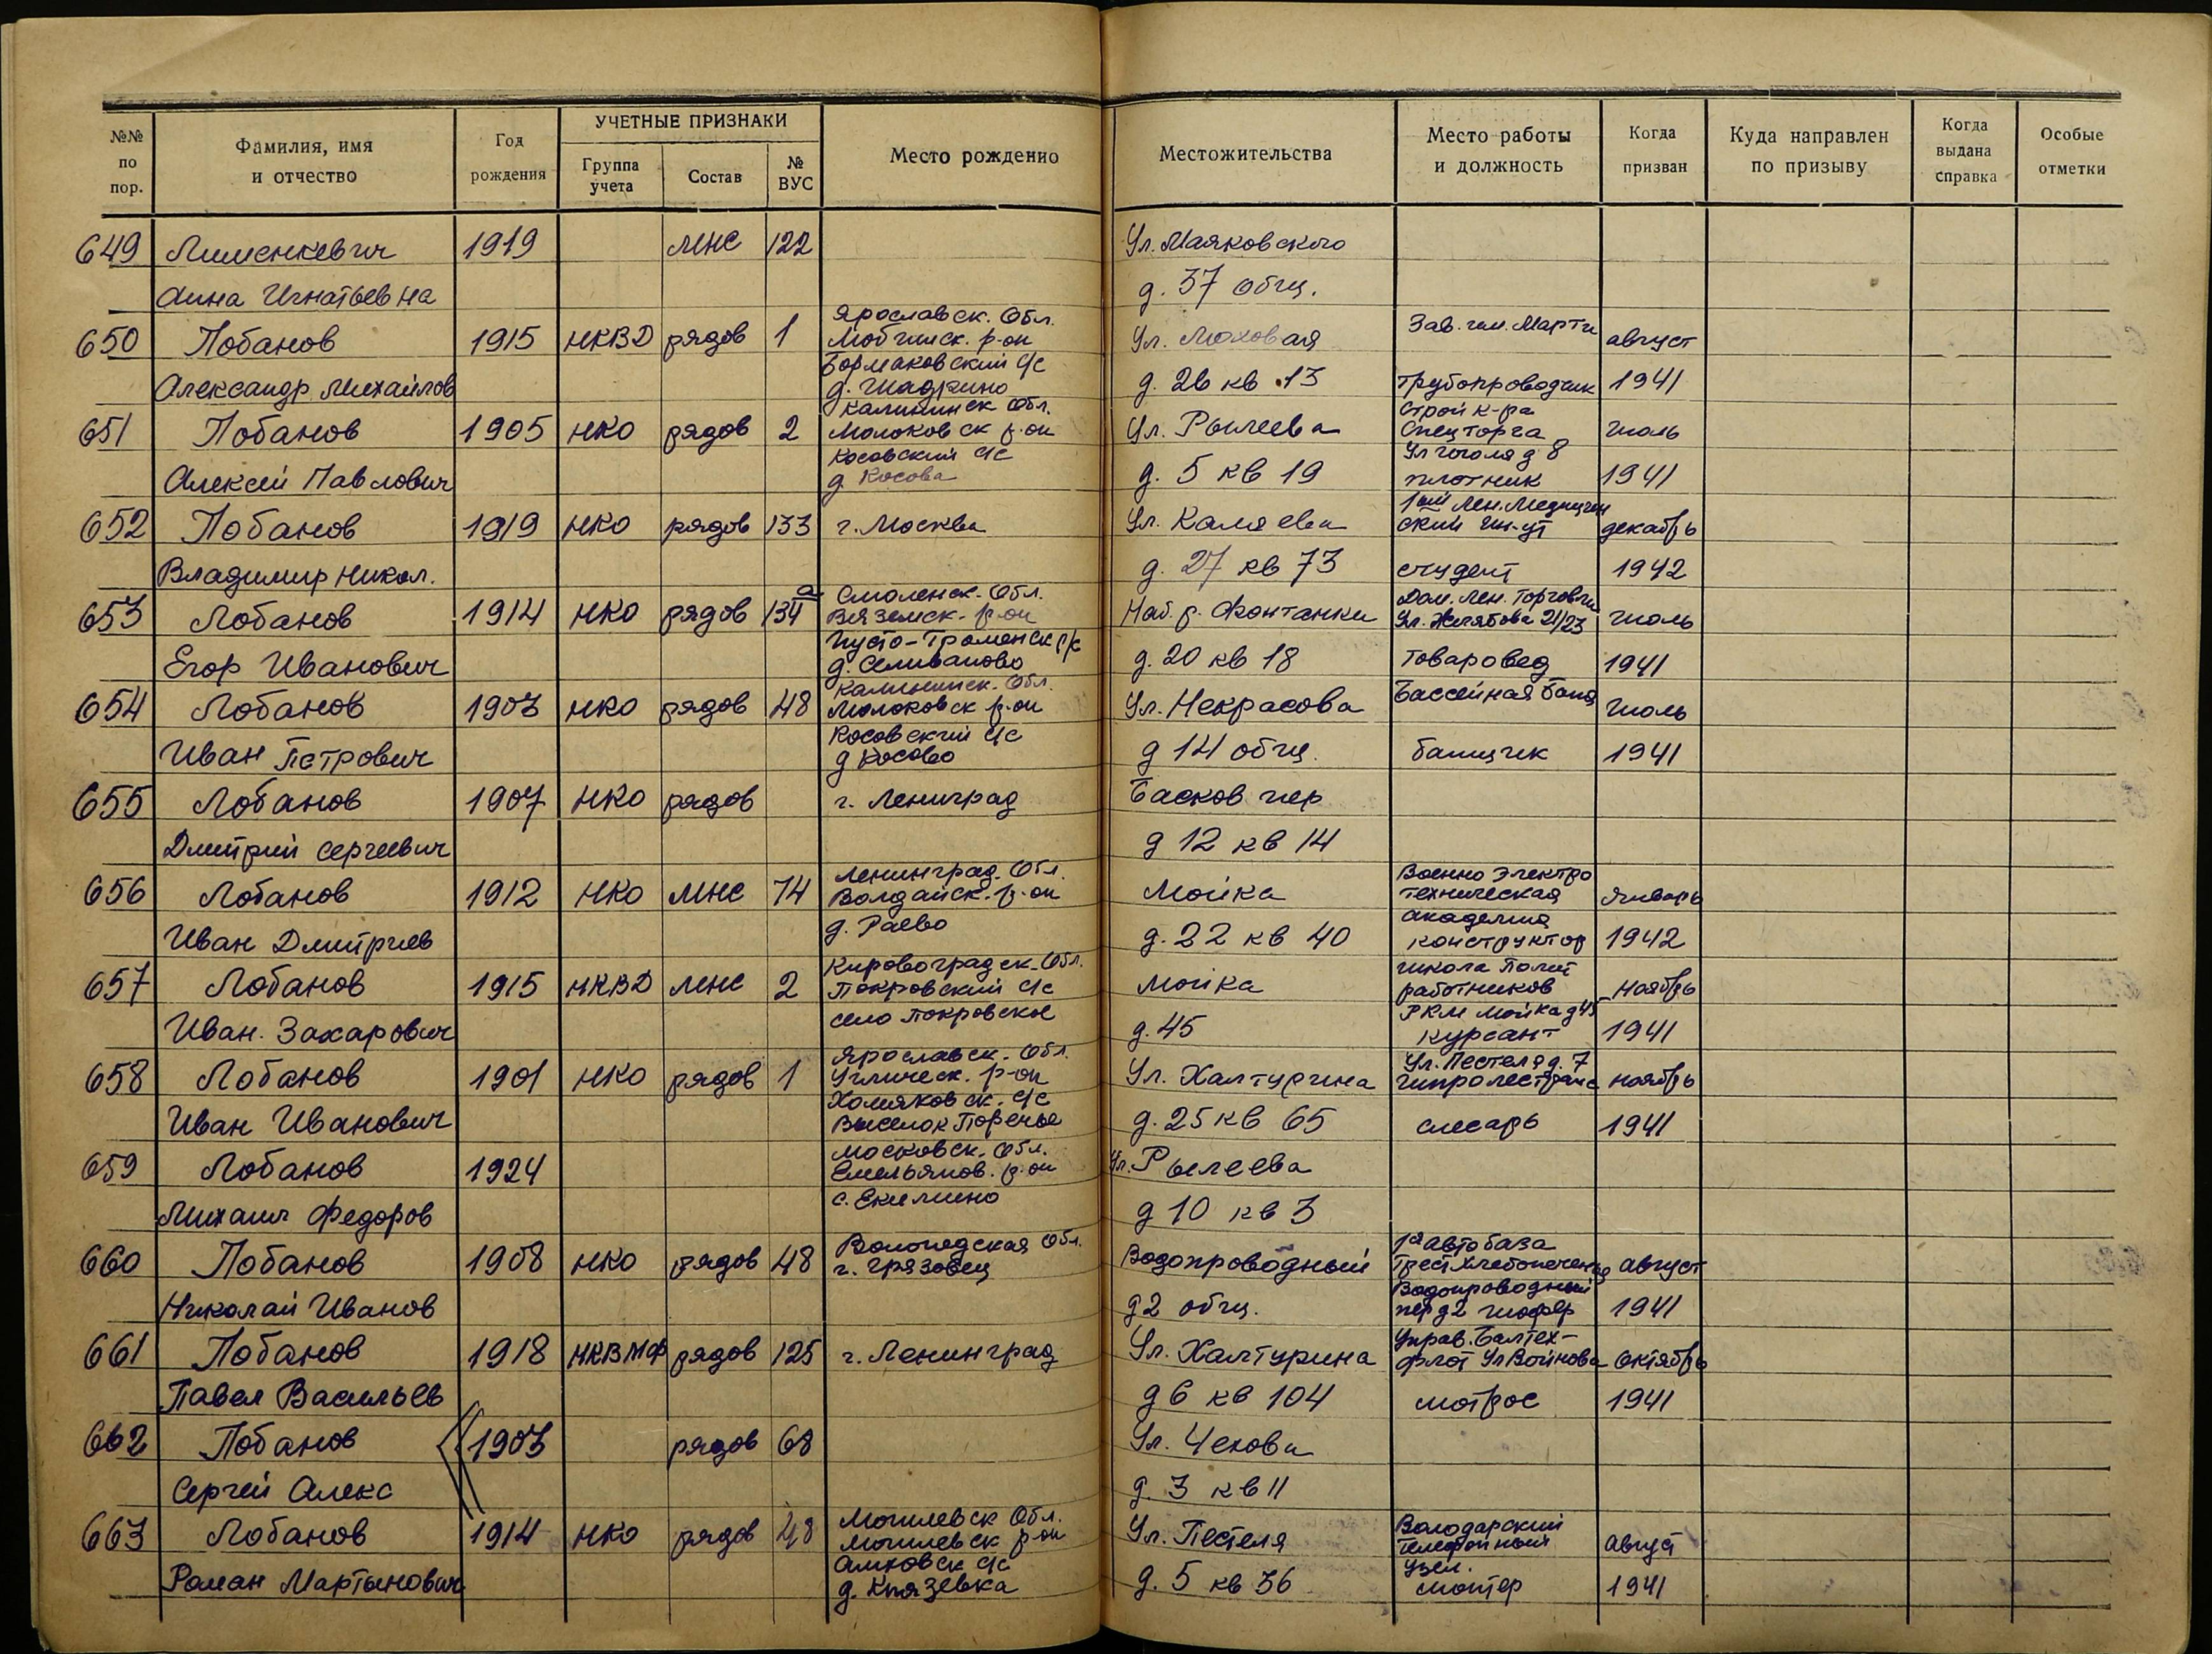 №№ по пор.
Фамилия, имя и отчество
Год рождения
УЧЕТНЫЕ ПРИЗНАКИ
Группа учета
Состав
№ ВУС
Место рождению
Местожительства
Место работы и должность
Когда призван
Куда направлен по призыву
Когда выдана справка
Особые отметки
649 1919 мнс 122 Ул. Маяковского
Анна Игнатьевна д. 37 общ.
Ярославск. Обл.
650 Лобанов 1915 НКВД рядов 1 р-он Ул. Моховая Зав. им. Марти август
Бормаковский с/с
Александр Михайлов д. Шадрино д. 26 кв 13 трубопроводчик 1941
Калининск Обл. Строй к-ра
651 Лобанов 1905 НКО рядов 2 Молоковск р-он Ул. Рылеева Спецторга июль
Косовский с/с Ул Гоголя д 8
Алексей Павлович д. Косова д. 5 кв 19 плотник 1941
1ый Лен. Медицин
652 Лобанов 1919 НКО рядов 133 г. Москва Ул. Каляева ский Ин-ут декабрь
Владимир Никол. д. 27 кв 73 студент 1942
Смоленск. Обл. Дом. Лен. Торговли
653 Лобанов 1914 НКО рядов 134 а Вяземск. р-он Наб. р. Фонтанки Ул. Желябова 21/23 июль
Егор Иванович д. Селиваново д. 20 кв 18 товаровед 1941
Калининск. Обл.
654 Лобанов 1903 НКО рядов 48 Молоковск р-он Ул. Некрасова Бассейная баня июль
Косовский с/с
Иван Петрович д Косово д 14 общ. банщик 1941
655 Лобанов 1907 НКО рядов г. Лениград Басков пер
Дмитрий Сергеевич д 12 кв 14
Ленинград. Обл. Военно Электро
656 Лобанов 1912 НКО мнс 74 Валдайск. р-он Мойка техническая январь
академия
Иван Дмитриев д. Раево д. 22 кв 40 конструктор 1942
Кировоградск. Обл. школа Полит
657 Лобанов 1915 НКВД мнс 2 Покровский с/с Мойка работников ноябрь
село Покровское РКМ Мойка д 45
Иван. Захарович д. 45 курсант 1941
Ярославск. Обл. Ул. Пестеля д. 7
658 Лобанов 1901 НКО рядов 1 Угличск. р-он Ул. Халтурина Гипролестранс ноябрь
Хомяковск. с/с
Иван Иванович Выселок Поречье д. 25 кв 65 слесарь 1941
Московск. Обл.
659 Лобанов 1924 Емельянов. р-он Ул. Рылеева
с. Екимино
Михаил Федоров д 10 кв 3
Вологодская Обл. 1а автобаза
660 Лобанов 1908 НКО рядов 48 г. Грязовец Водопроводный Трест Хлебопечения август
Водопроводный
Николай Иванов д 2 общ. пер д 2 шофер 1941
Управ. Балтех-
661 Лобанов 1918 НКВМФ рядов 125 г. Ленинград Ул. Халтурина флот Ул Войнова октябрь
Павел Васильев д 6 кв 104 матрос 1941
662 Лобанов 1903 рядов 68 Ул. Чехова
Сергей Алекс д. 3 кв 11
Могилевск Обл. Володарский
663 Лобанов 1914 НКО рядов 48 Могилевск р-он Ул. Пестеля телефонный август
с/с узел.
Роман Мартынович д. Князевка д. 5 кв 36 монтер 1941